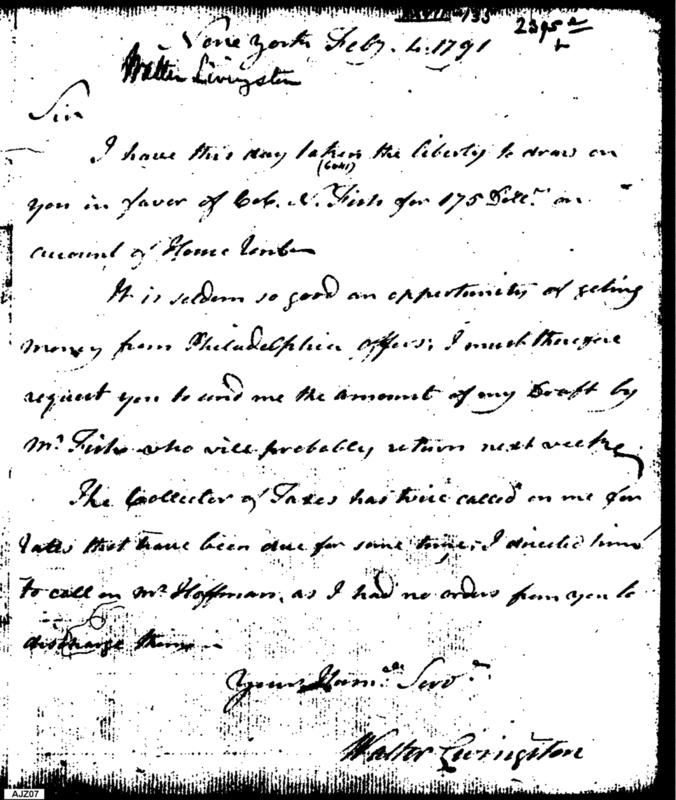 135
2395
New York Feb.y 4. 1791
Walter Livingston
Sir
I have this day taken the liberty to draw on
you in favor of Col. N. Fish for 175 Doll.rs on
account of House
It is seldom so good an opportunity of geting
money from Philadelphia offers; I must therefore
request you to send me the amount of my Draft by
Mr. Fish who will probably return next weeke
The Collector of Taxes has twice called on me for
taxes that have been due for some time; I directed him
to call on Mr. Hoffman, as I had no orders from you to
discharge them
Your Hum.ble Serv.t
Walter Livingston
AJZ07